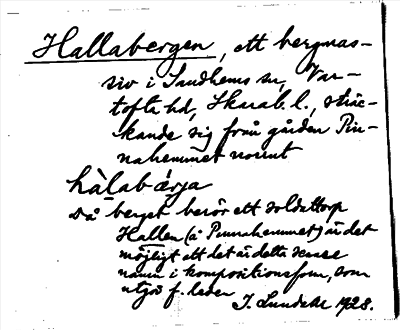 Hallabergen, ett bergmas-
siv i Sandhems sn, Var-
tofta hd, Skarab. l., sträc-
kande sig från gården Pin-
nahemmet norrut
hàlabǽrja
Då berget berör ett soldattorp
Hallen (å Pinnahemmet) är det
möjligt att det är detta senare
namn i kompositionsform, som
utgör f. leden
J. Lundahl 1928.